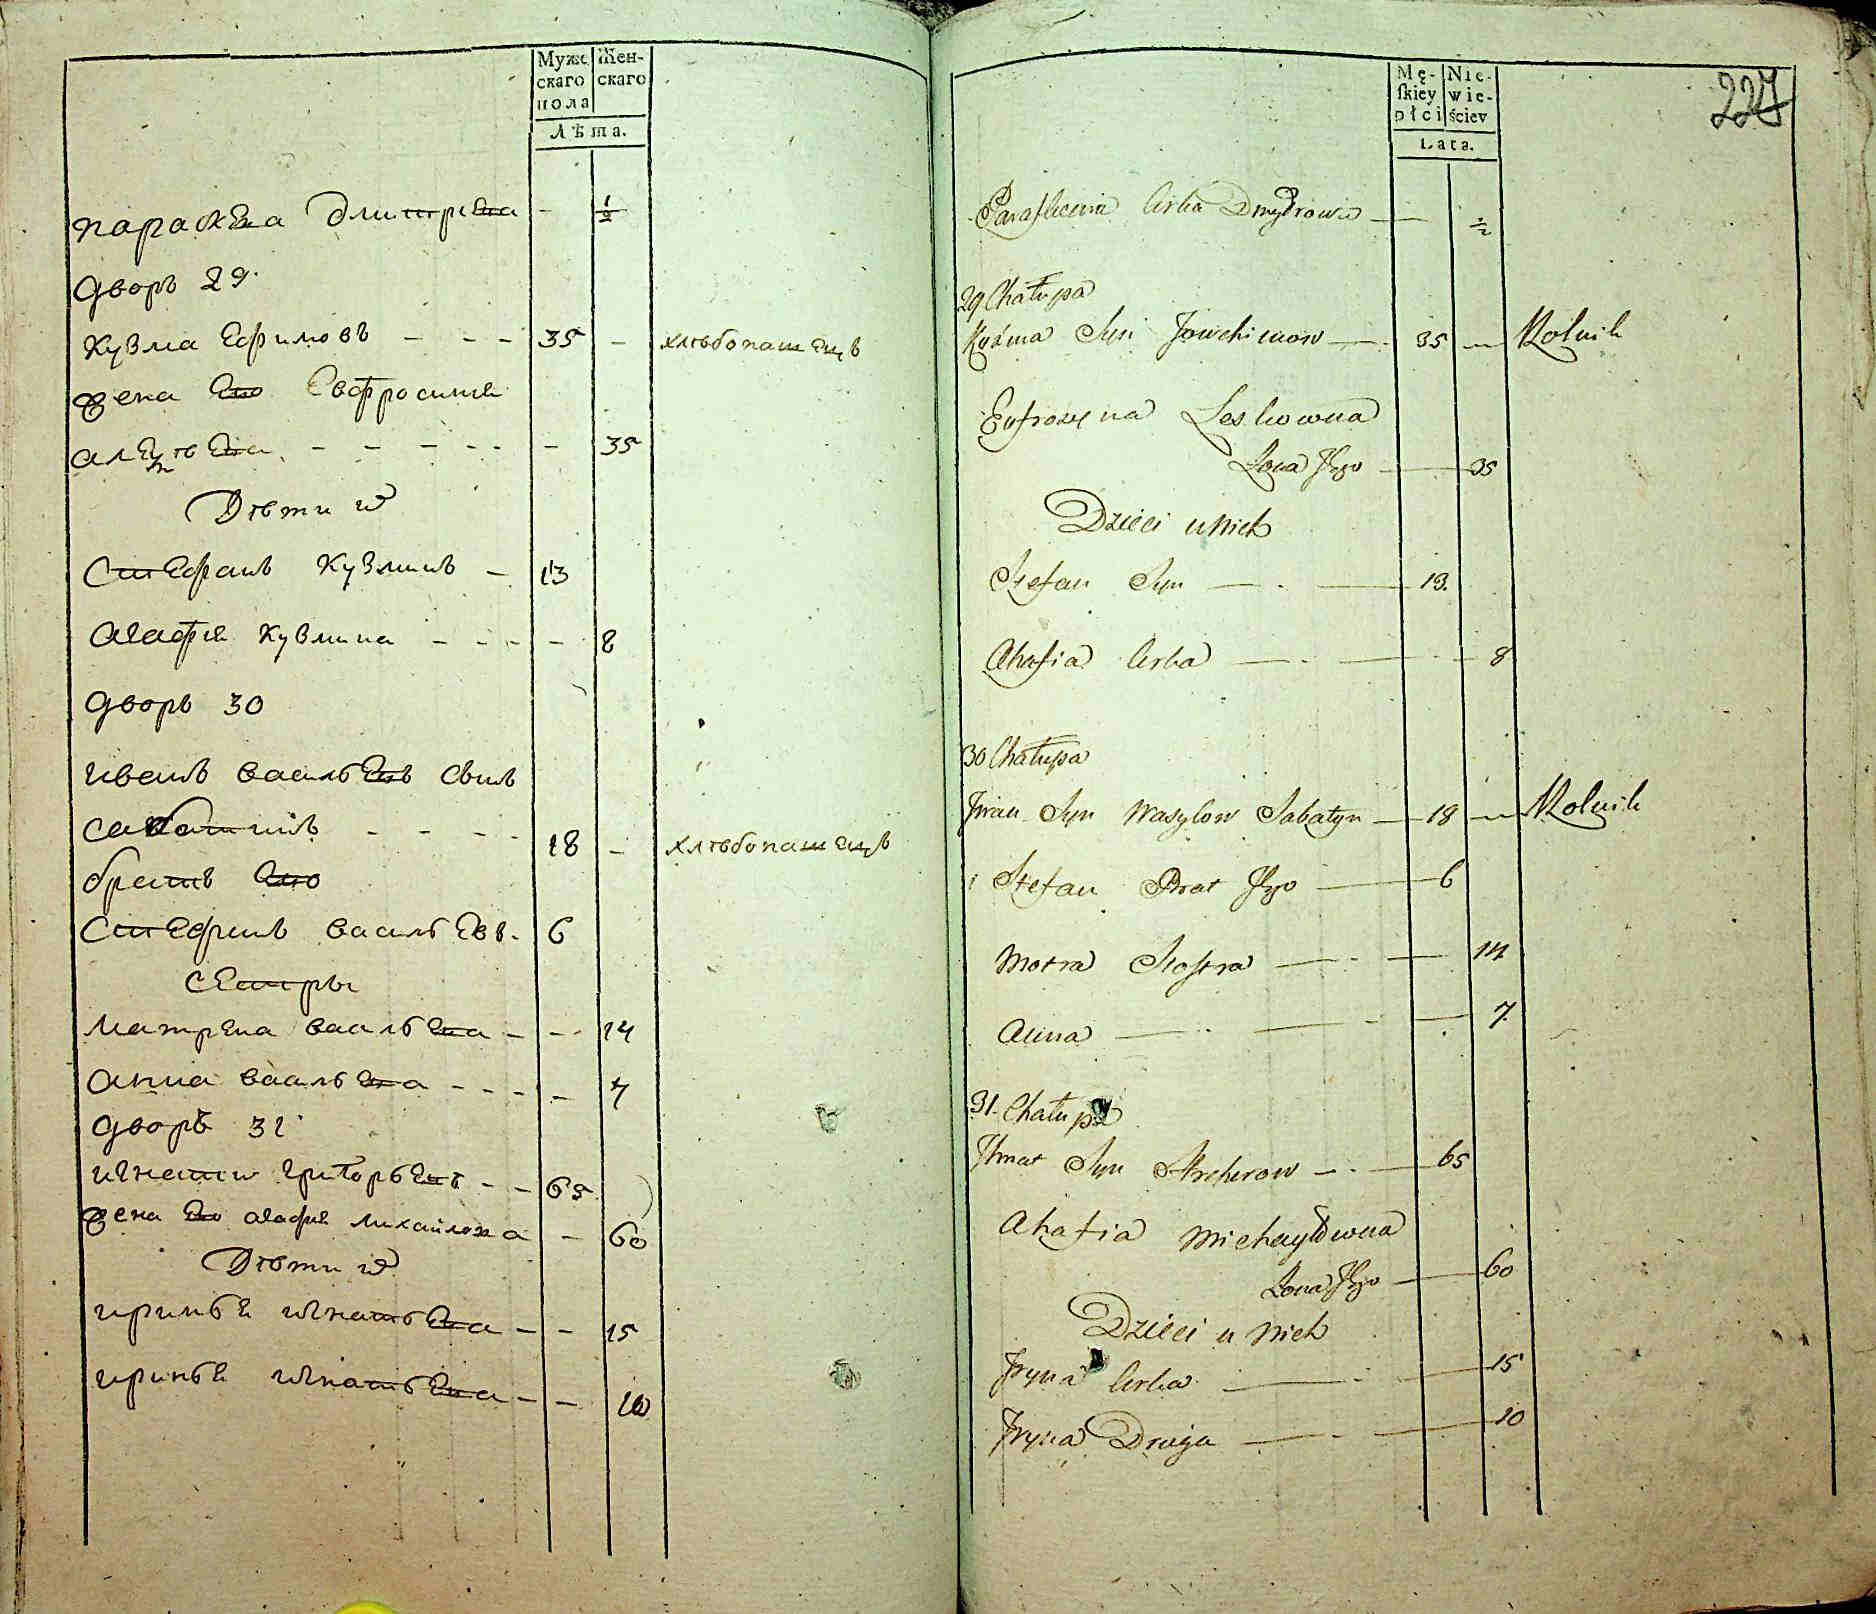 Муже
скаго
пола
Жен-
скаго
Лѣта.
параскева дмитрева - ½
дворъ 29.
кузма Ефимовъ - - - 35 - хлѣбопашецъ
жена Его Евфросиния
алексѣева - - - - - - 35
Дѣти их
Стефанъ кузминъ - 13
агафия кузмина - - - - 8
дворъ 30
иванъ васильевъ сынъ
сабатинъ - - - - 18 - хлѣбопашецъ
братъ Его
Стефанъ васильевъ. 6
сестры
матрена васильева - - 14
анна васильева - - - - 7
дворъ 31
игнатий григорьевъ - - 65
жена Его агафия михайлова - 60
Дѣти их
ирина игнатьева - - 15
ирина игнатьева - - 10
Mę-
skiey
płci
Nie-
wie-
ściey
Lata.
227
Paraskewia Crka Dmytrowa — ½
29 Chałupa
Kuźma Syn Jowchimow — 35 — Rolnik
Eufrozyna Leskowna
Żona Jego — 35
Dzieci u Nich
Stefan Syn — 13.
Ahafia Crka — 8
30 Chałupa
Iwan Syn Wasylow Sabatyn — 18 — Rolnik
Stefan Brat Jego — 6
Motra Siostra — 14
Anna — 7
31. Chałupa
Ihnat Syn — 65
Ahafia Michayłowna
Żona Jego — 60
Dzieci u Nich
Iryna Crka — 15
Iryna Druga — 10